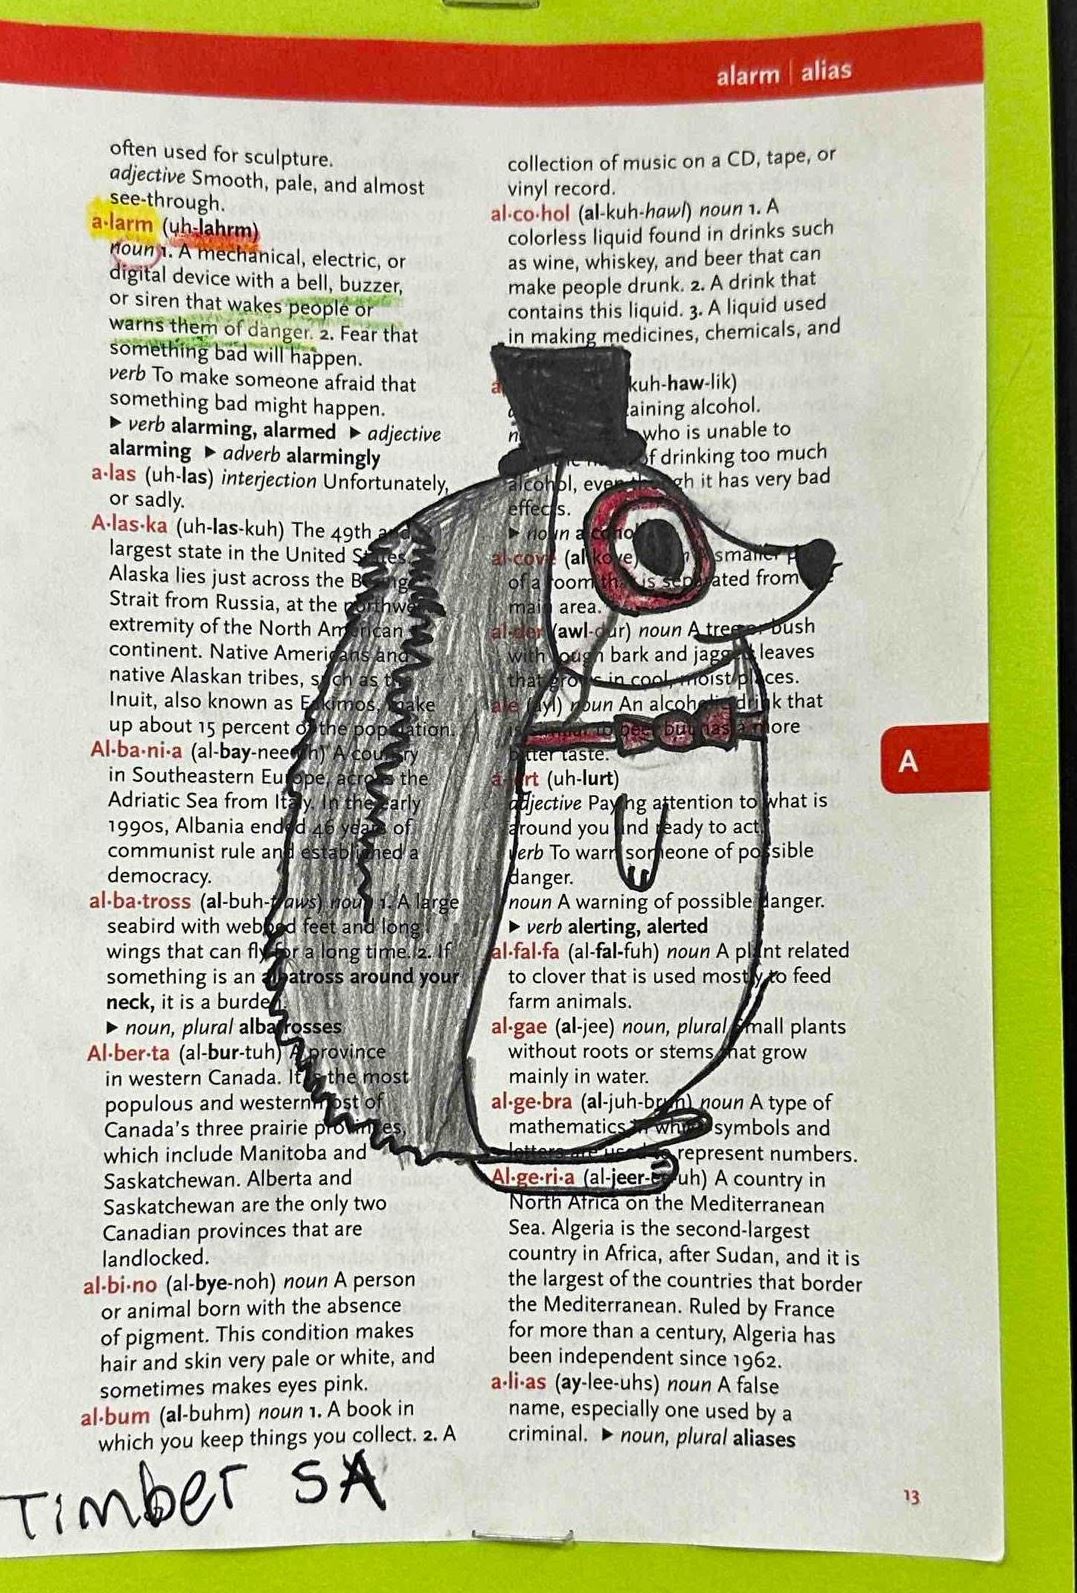 alarm | alias
often used for sculpture.
adjective Smooth, pale, and almost
see-through.
a·larm (uh-lahrm)
noun 1. A mechanical, electric, or
digital device with a bell, buzzer,
or siren that wakes people or
warns them of danger. 2. Fear that
something bad will happen.
verb To make someone afraid that
something bad might happen.
▶ verb alarming, alarmed ▶ adjective
alarming ▶ adverb alarmingly
a·las (uh-las) interjection Unfortunately,
or sadly.
A·las·ka (uh-las-kuh) The 49th and
largest state in the United States.
Alaska lies just across the Bering
Strait from Russia, at the northwest
extremity of the North American
continent. Native Americans and
native Alaskan tribes, such as the
Inuit, also known as Eskimos, make
up about 15 percent of the population.
Al·ba·ni·a (al-bay-nee-uh) A country
in Southeastern Europe, across the
Adriatic Sea from Italy. In the early
1990s, Albania ended 46 years of
communist rule and established a
democracy.
al·ba·tross (al-buh-traws) noun 1. A large
seabird with webbed feet and long
wings that can fly for a long time. 2. If
something is an albatross around your
neck, it is a burden.
▶ noun, plural albatrosses
Al·ber·ta (al-bur-tuh) A province
in western Canada. It is the most
populous and westernmost of
Canada's three prairie provinces,
which include Manitoba and
Saskatchewan. Alberta and
Saskatchewan are the only two
Canadian provinces that are
landlocked.
al·bi·no (al-bye-noh) noun A person
or animal born with the absence
of pigment. This condition makes
hair and skin very pale or white, and
sometimes makes eyes pink.
al·bum (al-buhm) noun 1. A book in
which you keep things you collect. 2. A
collection of music on a CD, tape, or
vinyl record.
al·co·hol (al-kuh-hawl) noun 1. A
colorless liquid found in drinks such
as wine, whiskey, and beer that can
make people drunk. 2. A drink that
contains this liquid. 3. A liquid used
in making medicines, chemicals, and
kuh-haw-lik)
alcohol.
who is unable to
of drinking too much
alcohol, even though it has very bad
effects.
▶ noun
al·cove (al-kove) noun A smaller part
of a room that is separated from
main area.
al·der (awl-dur) noun A tree or bush
with rough bark and jagged leaves
that grows in cool, moist places.
ale (ayl) noun An alcoholic drink that
is similar to beer but has a more
bitter taste.
a·lert (uh-lurt)
adjective Paying attention to what is
around you and ready to act.
verb To warn someone of possible
danger.
noun A warning of possible danger.
▶ verb alerting, alerted
al·fal·fa (al-fal-fuh) noun A plant related
to clover that is used mostly to feed
farm animals.
al·gae (al-jee) noun, plural Small plants
without roots or stems that grow
mainly in water.
al·ge·bra (al-juh-bruh) noun A type of
mathematics in which symbols and
letters are used to represent numbers.
Al·ge·ri·a (al-jeer-ee-uh) A country in
North Africa on the Mediterranean
Sea. Algeria is the second-largest
country in Africa, after Sudan, and it is
the largest of the countries that border
the Mediterranean. Ruled by France
for more than a century, Algeria has
been independent since 1962.
a·li·as (ay-lee-uhs) noun A false
name, especially one used by a
criminal. ▶ noun, plural aliases
A
Timber SA
13